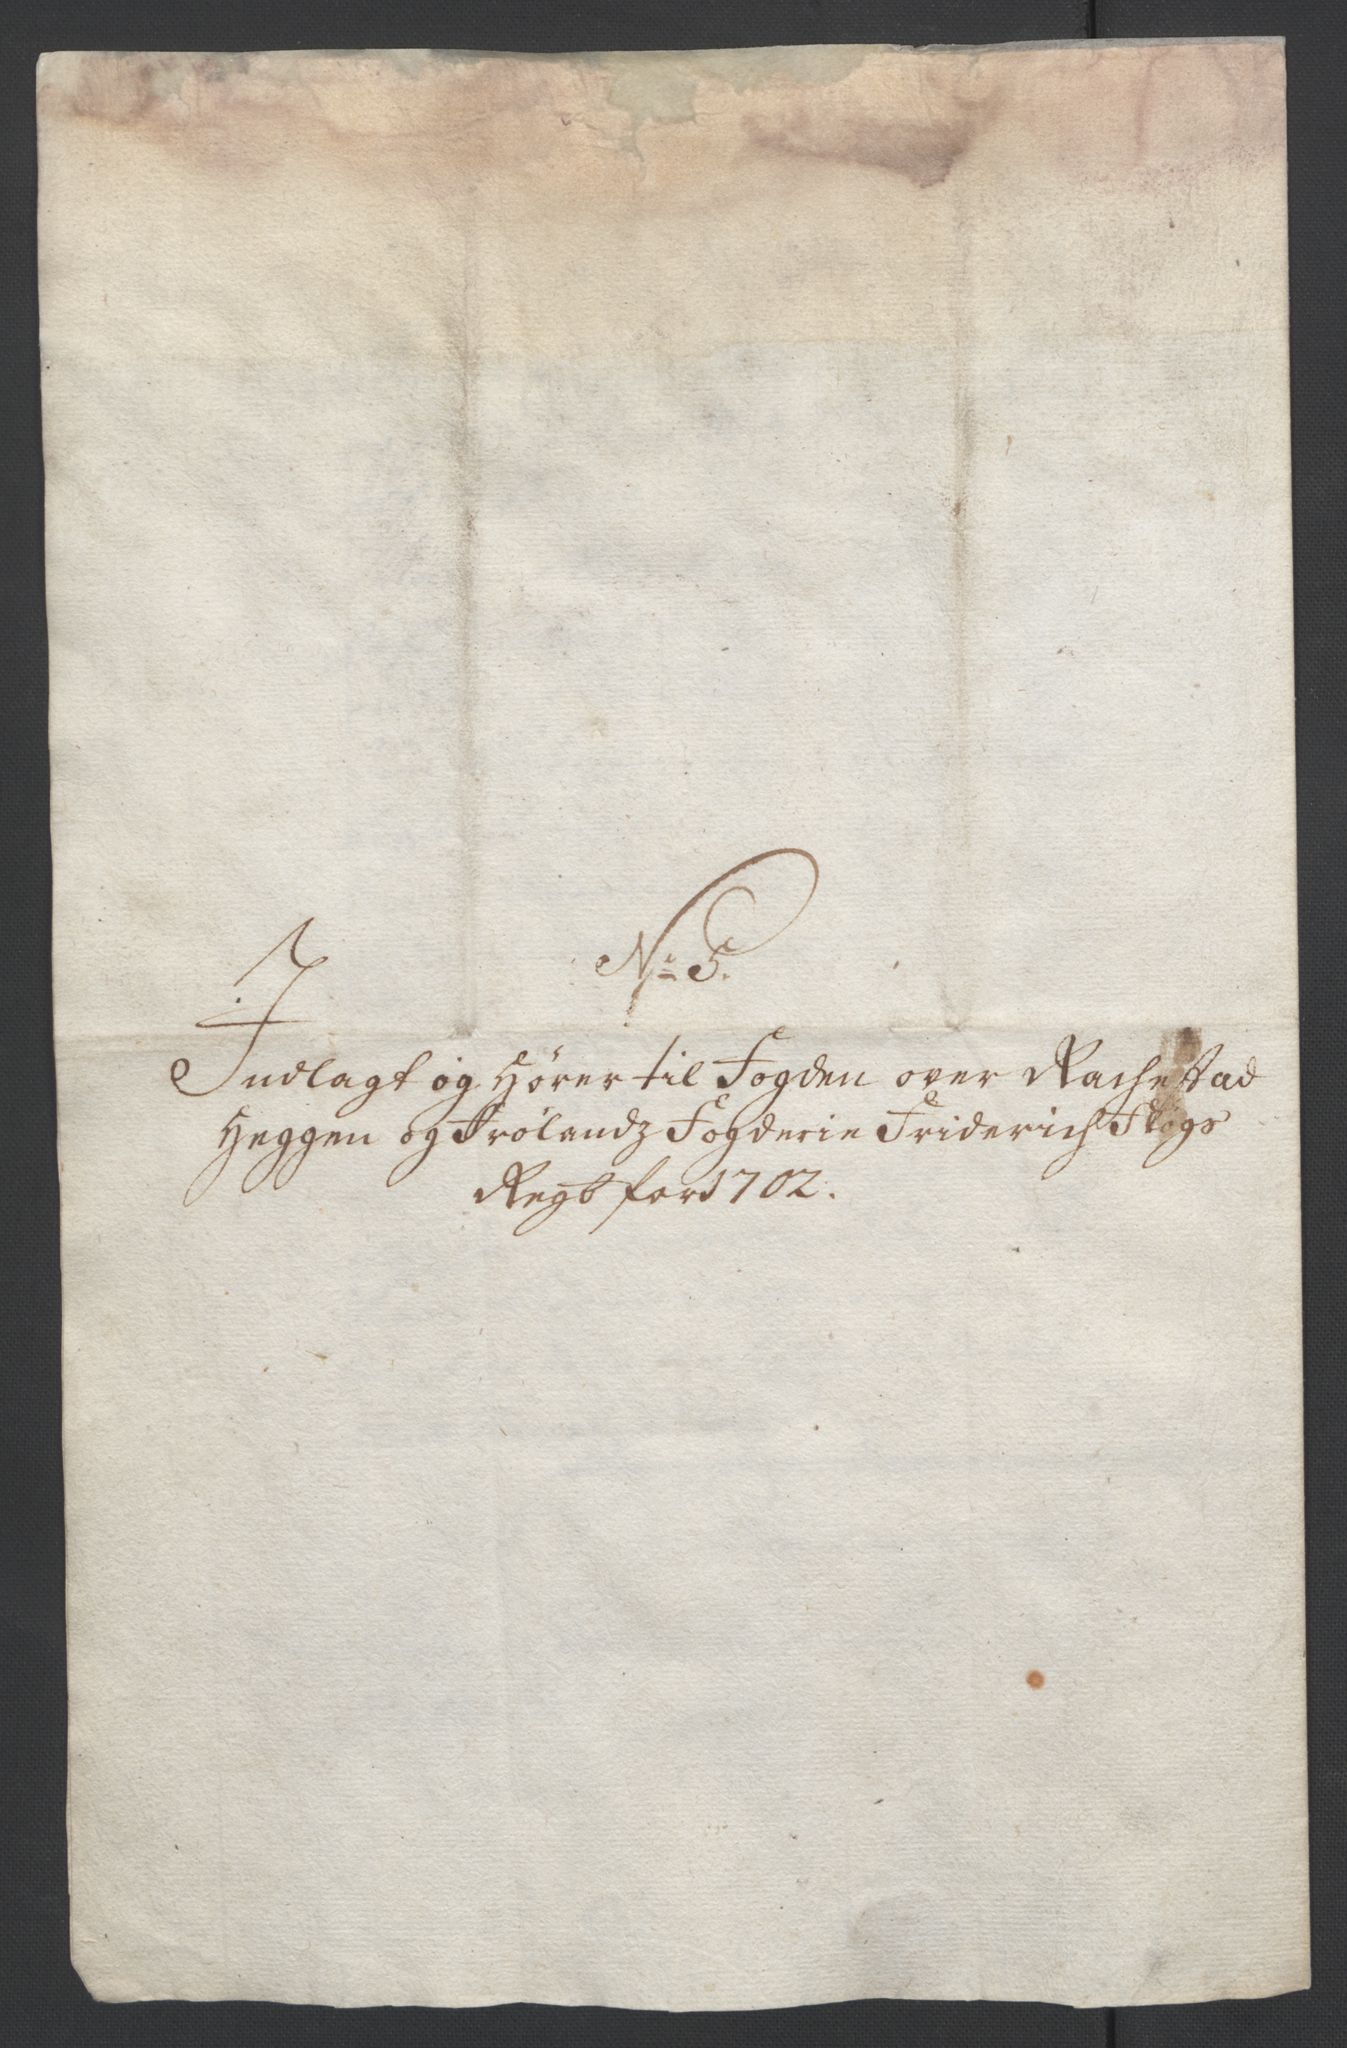 No 5.
Indlagt og Hörer til Fogden over Rachestad
Heggen og Frölandz Fogderie Friderich Flögs
Regb for 1702.